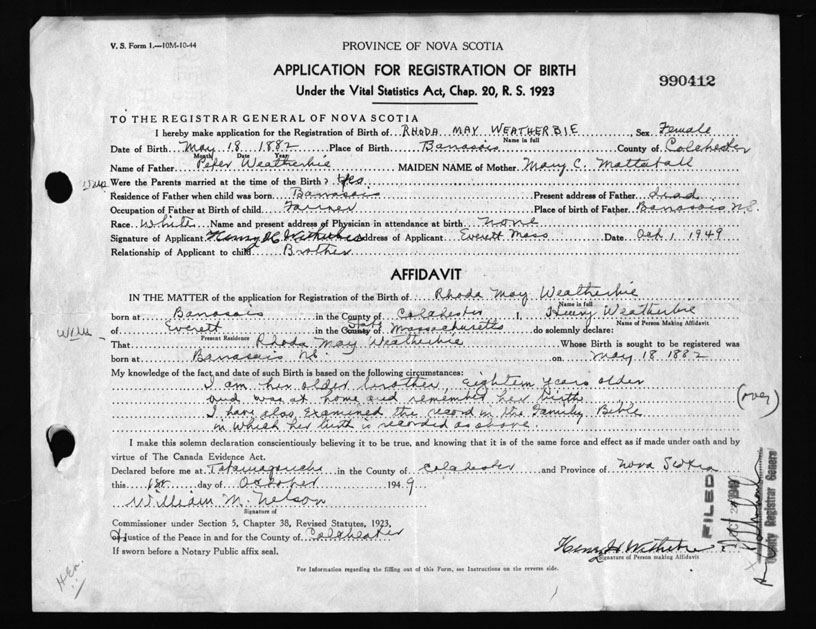 V. S. Form 1.—10M-10-44
PROVINCE OF NOVA SCOTIA
APPLICATION FOR REGISTRATION OF BIRTH
990412
Under the Vital Statistics Act, Chap. 20, R. S. 1923
TO THE REGISTRAR GENERAL OF NOVA SCOTIA
I hereby make application for the Registration of Birth of RHODA MAY WEATHERBIE Sex Female
Name in full
Date of Birth May 18 1882 Place of Birth Banasais County of Colchester
Month Date Year
Name of Father Peter Weatherbie MAIDEN NAME of Mother Mary C. Mattatall
Were the Parents married at the time of the Birth? Yes
Residence of Father when child was born Banasais Present address of Father dead
Occupation of Father at Birth of child Farmer Place of birth of Father Banasais N.S.
Race White Name and present address of Physician in attendance at birth none
Signature of Applicant Henry Address of Applicant Everett Mass Date Oct 1 1949
Relationship of Applicant to child Brother
AFFIDAVIT
IN THE MATTER of the application for Registration of the Birth of Rhoda May Weatherbie
Name in full
born at Banasais in the County of Colchester I, Henry Weatherbie
Name of Person Making Affidavit
of Everett in the County of State Massachusetts do solemnly declare:
Present Residence
That Rhoda May Weatherbie Whose Birth is sought to be registered was
born at Banasais N.S. on May 18 1882
My knowledge of the fact and date of such Birth is based on the following circumstances:
I am her older brother, eighteen years older
and was at home and remember her birth.
(over)
I have also examined the record in the Family Bible
in which her birth is recorded as above.
I make this solemn declaration conscientiously believing it to be true, and knowing that it is of the same force and effect as if made under oath and by
virtue of The Canada Evidence Act.
Declared before me at Tatamagouche in the County of Colchester and Province of Nova Scotia
this 1st day of October 1949
William M. Nelson
Signature of
Commissioner under Section 5, Chapter 38, Revised Statutes, 1923,
Justice of the Peace in and for the County of Colchester
If sworn before a Notary Public affix seal.
Signature of Person making Affidavit
FILED
Deputy Registrar General
For Information regarding the filling out of this Form, see Instructions on the reverse side.